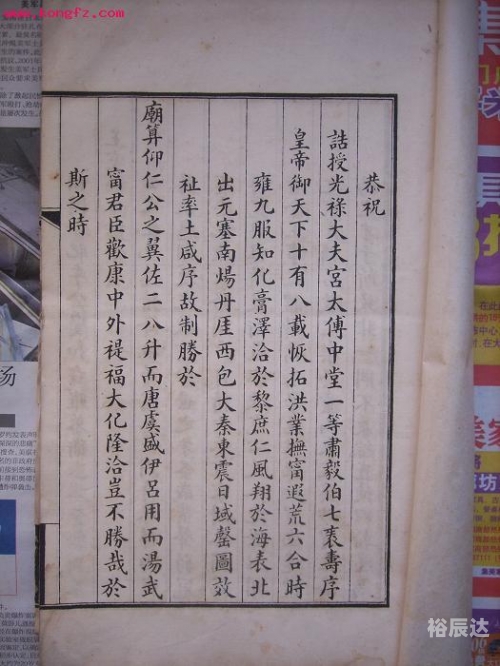 恭祝
誥授光祿大夫宮太傅中堂一等肅毅伯七袠壽序
皇帝御天下十有八載恢拓洪業撫甯遐荒六合時
雍九服知化膏澤洽於黎庶仁風翔於海表北
出元塞南煬丹厓西包大秦東震日域罄圖效
祉率土咸序故制勝於
廟算仰仁公之翼佐二八升而唐虞盛伊呂用而湯武
甯君臣歡康中外禔福大化隆洽豈不勝哉於
斯之時
裕辰达